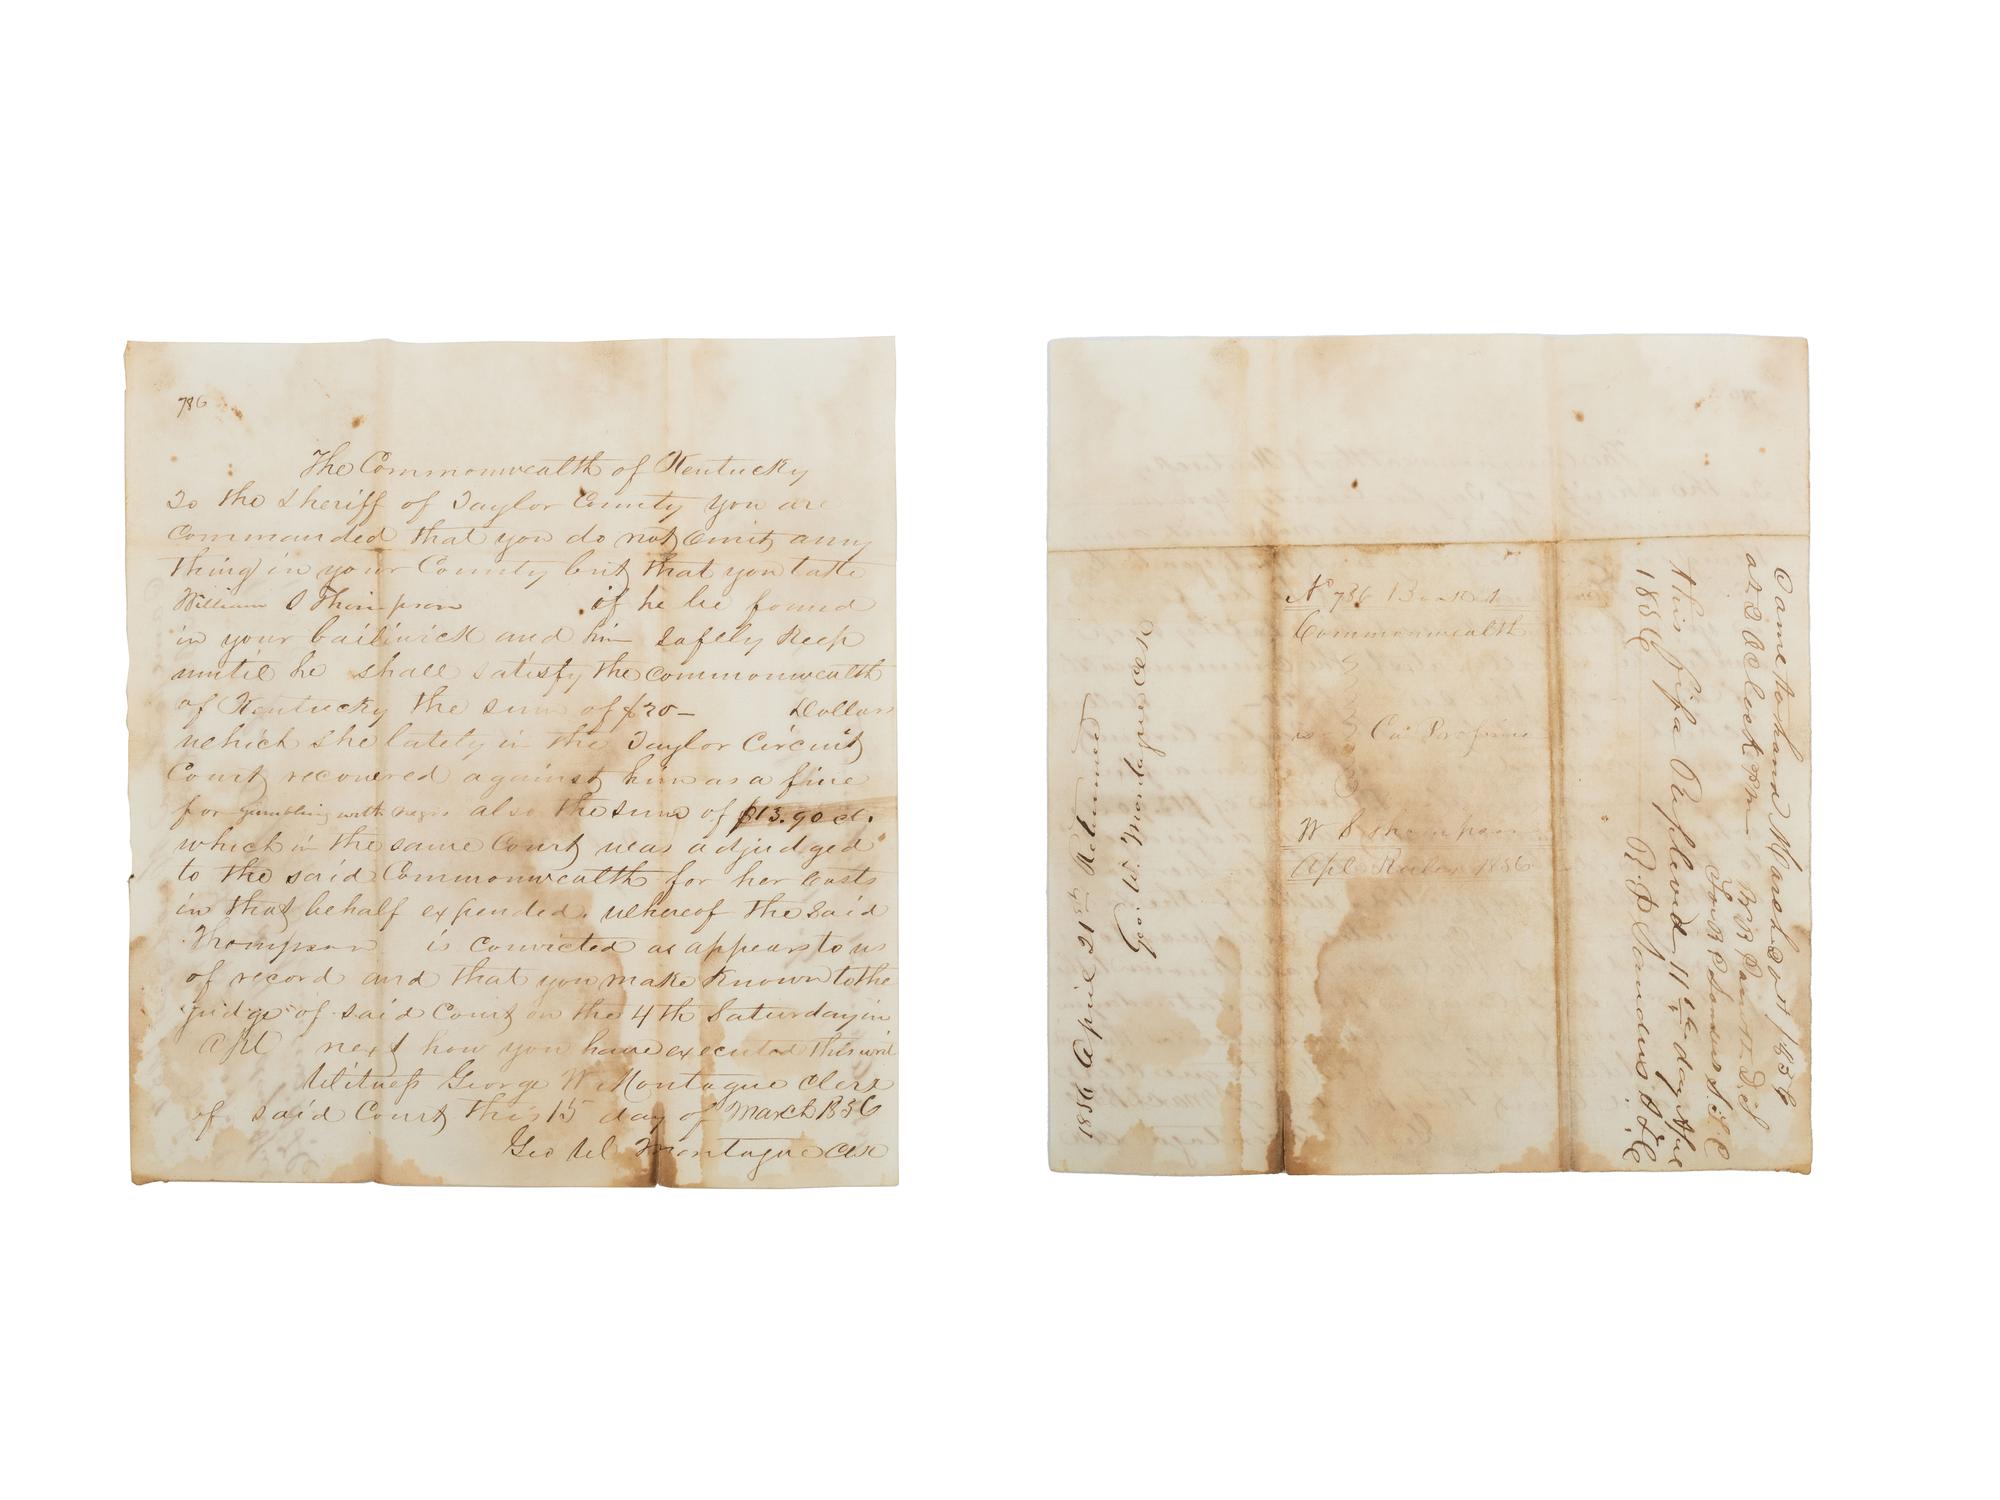 736
The Commonwealth of Kentucky
To the Sheriff of Taylor County you are
Commanded that you do not omit anny
thing in your County but that you take
William S Thompson if he be found
in your bailiwick and him safely keep
until he shall satisfy the Commonwealth
of Kentucky the sum of $20- Dollars
which she lately in the Taylor Circuit
Court recovered against him as a fine
for gambling with negro also the sum of $13.90 ct.
which in the same Court was adjudged
to the said Commonwealth for her costs
in that behalf expended. whereof the said
Thompson is convicted as appears to us
of record and that you make known to the
judge of said Court on the 4th Saturday in
Apl next how you have executed this writ
Witness George W Montague Clerk
of said Court this 15 day of March 1856
Geo W Montague Clk
1856 April 21st Returned
Geo. W. Montague Clk
No 736
Commonwealth
vs Ca Pro fine
W S Thompson
Apl Rules 1856
Came to hand March 20th 1856
at 2 Oclock PM
D.S
For S.T.C
this fifa Replevied 11th day Apl
1856